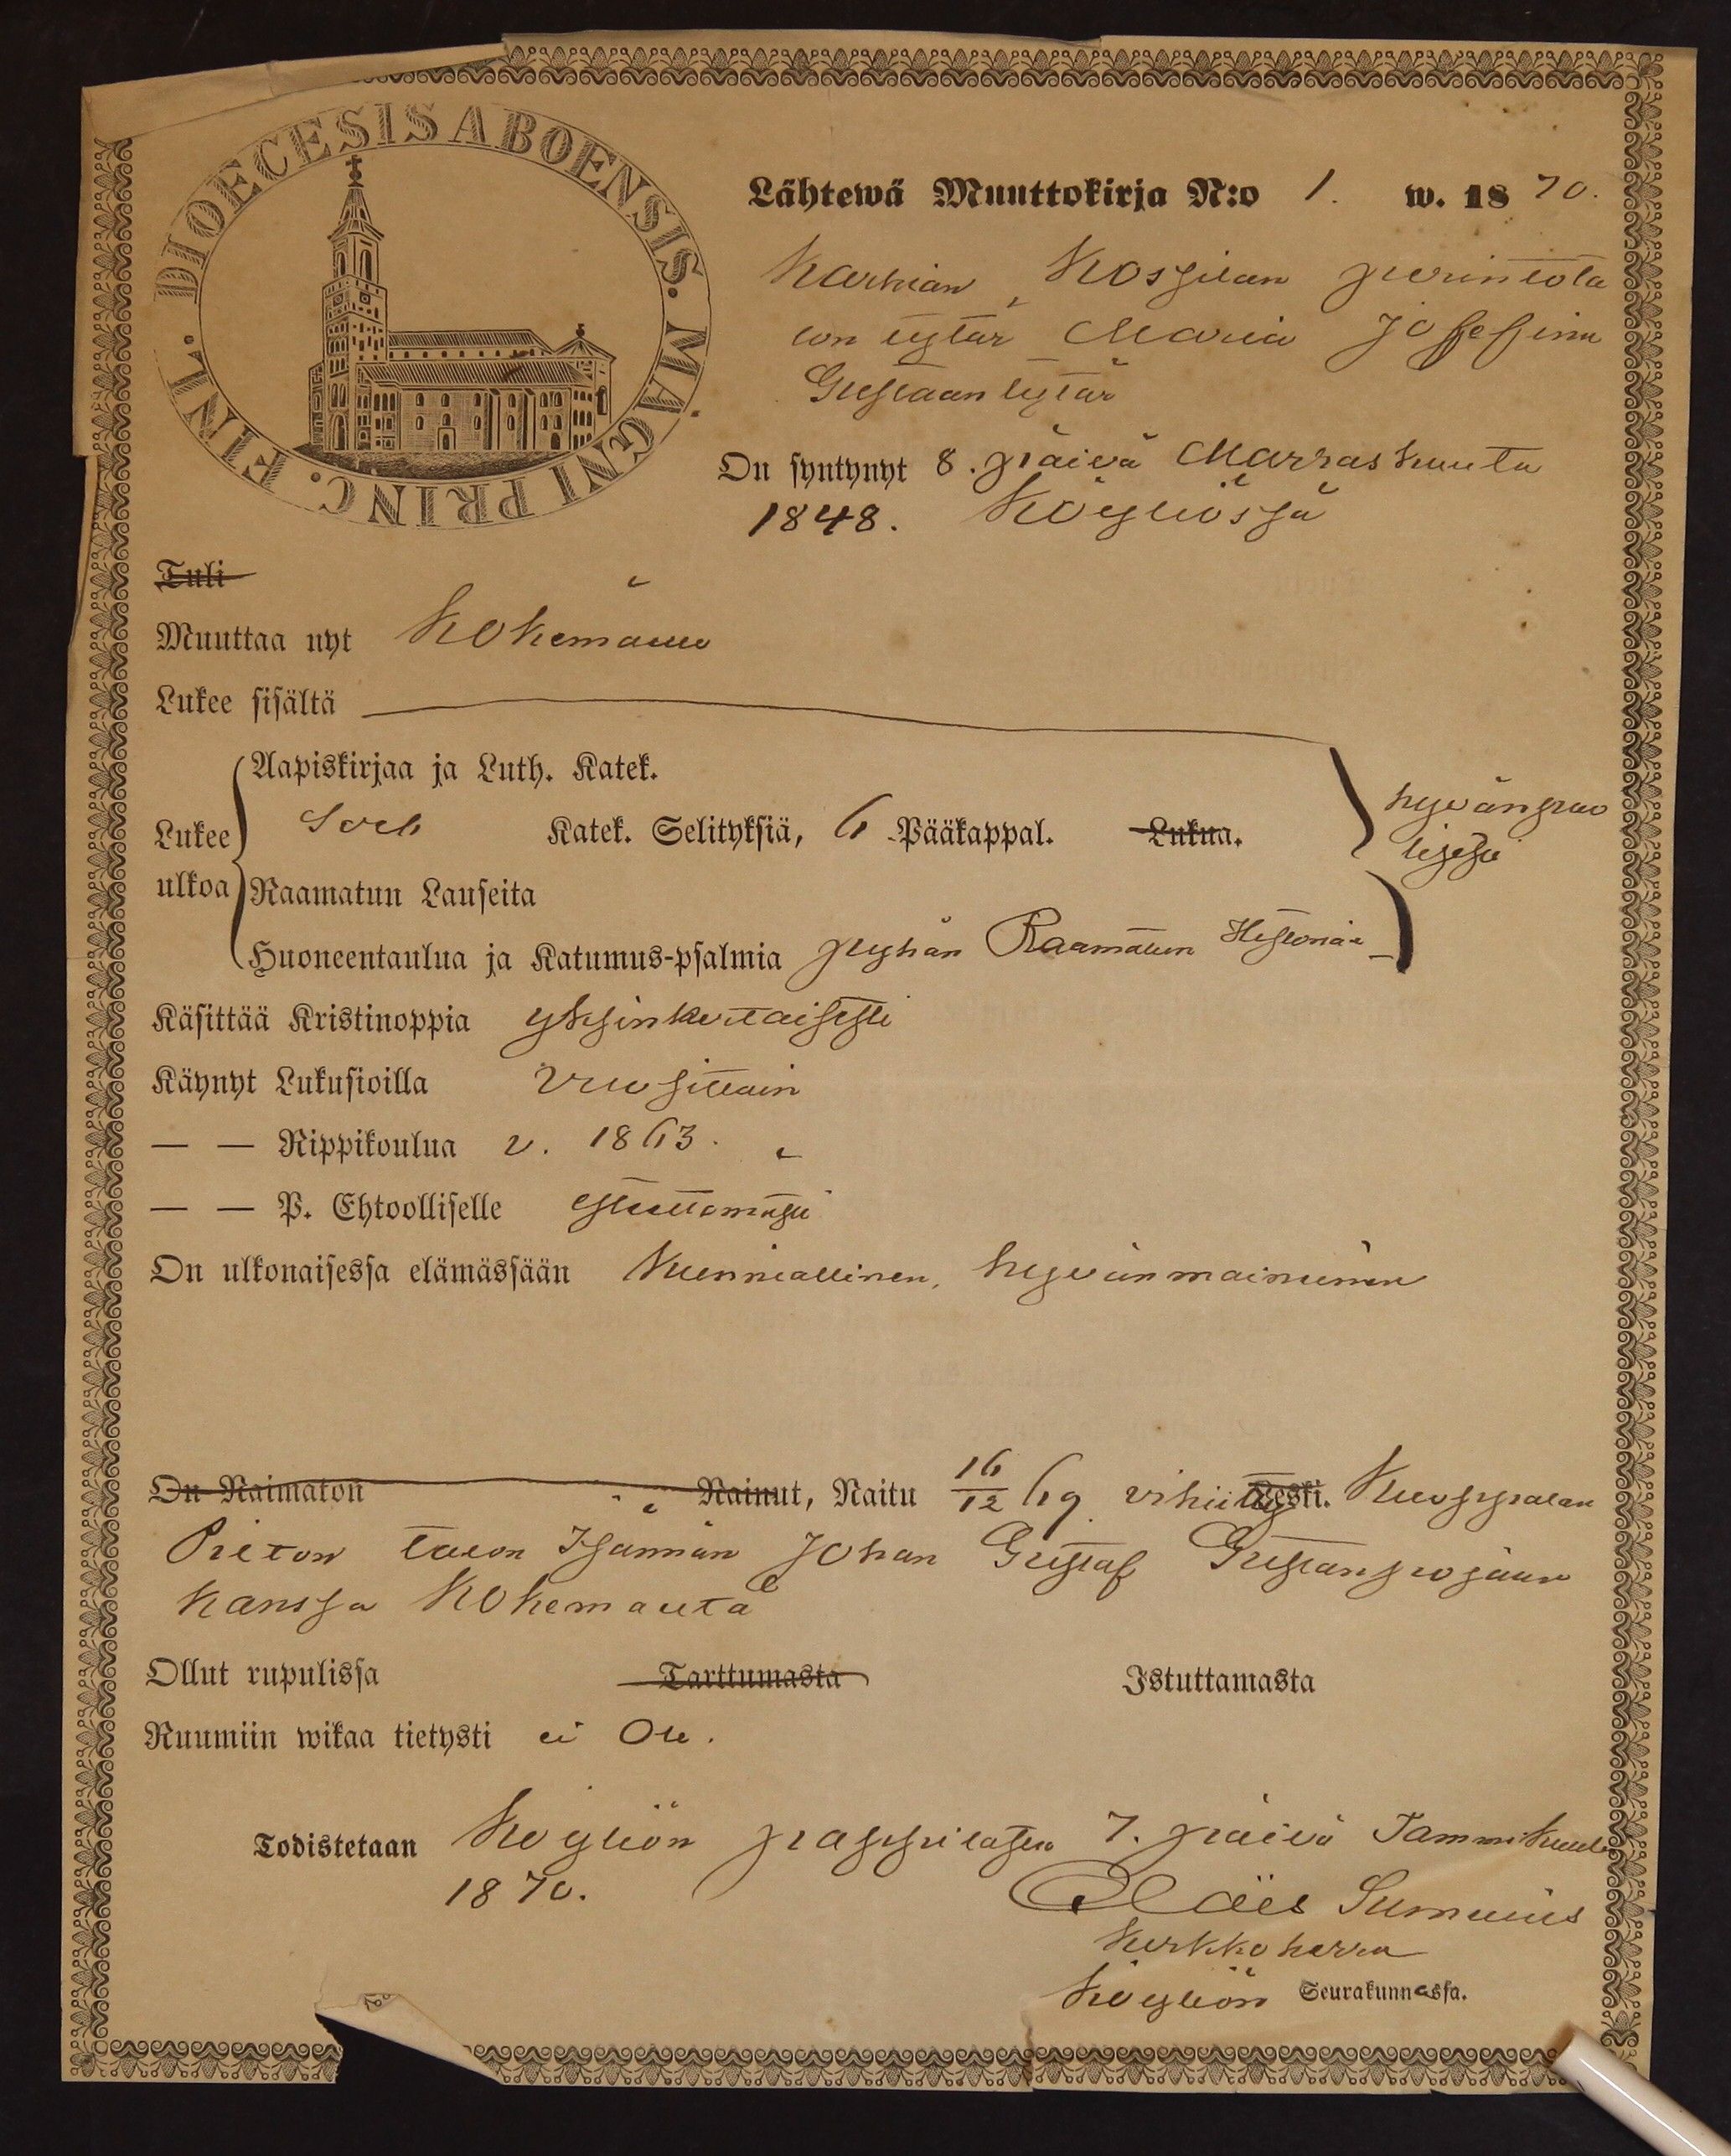 DIOECESIS ABOENSIS. MAGNI PRINC. FINL.
Lähtewä Muuttokirja N:o 1. w. 1870.
Karhian Kossilan perintöta
lon tytär Maria Josefina
Gustaantytär
On syntynyt 8. päivä Marraskuuta
1848. Köyliössä
Tuli
Muuttaa nyt Kokemäelle
Lukee sisältä
Aapiskirjaa ja Luth. Katek.
Lukee Katek. Selityksiä, 6 Pääkappal. Lukua. hyvänpuo
ulkoa Raamatun Lauseita lisesti
Huoneentaulua ja Katumus-psalmia pyhän Raamatun Historiaa
Käsittää Kristinoppia yksinkertaisesti
Käynyt Lukusioilla vuosittain
— — Rippikoulua v. 1863.
— — P. Ehtoolliselle estettömästi
On ulkonaisessa elämässään Kunniallinen, hyvän maininen
On Naimaton Nainut, Naitu 16/12 69 vihitty Leski. Kuoppalan
Prihon talon Isännän Johan Gustaf Gustanpojan
kanssa Kokemäeltä
Ollut rupulissa Tarttumasta Istuttamasta
Ruumiin wikaa tietysti ei Ole.
Todistetaan Köyliön pappilassa 7. päivä Tammikuuta
1870. Claës Sumelius
Kirkkoherra
Köyliön Seurakunnassa.